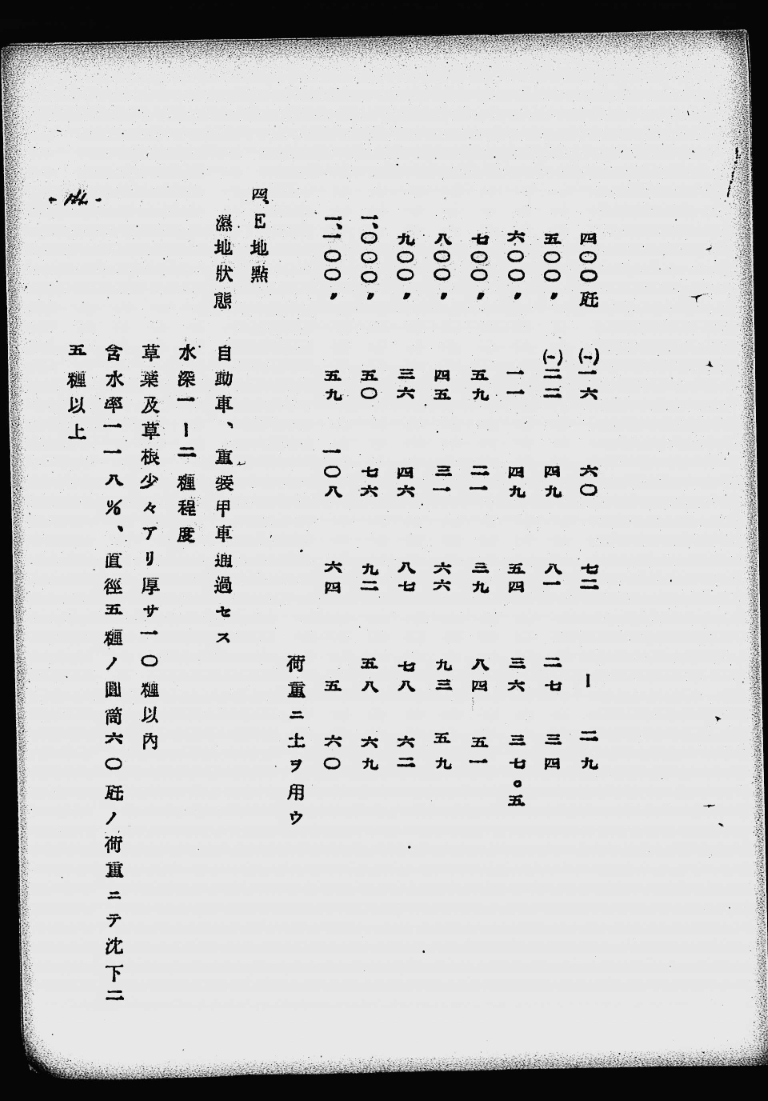 四〇〇瓩 (一)一六 六〇 七二 ー 二九
五〇〇〃 (一)二二 四九 八一 二七 三四
六〇〇〃 一一 四九 五四 三六 三七。五
七〇〇〃 五九 二一 三九 八四 五一
八〇〇〃 四五 三一 六六 九三 五九
九〇〇〃 三六 四六 八七 七八 六二
一、〇〇〇〃 五〇 七六 九二 五八 六九
一、一〇〇〃 五九 一〇八 六四 五 六〇
荷重ニ土ヲ用ウ
四、E地點
濕地狀態 自動車、重裝甲車通過セス
水深一ー二糎程度
草葉及草根少々アリ厚サ一〇糎以內
含水率一一八%、直徑五糎ノ圓筒六〇瓩ノ荷重ニテ沈下二
五糎以上